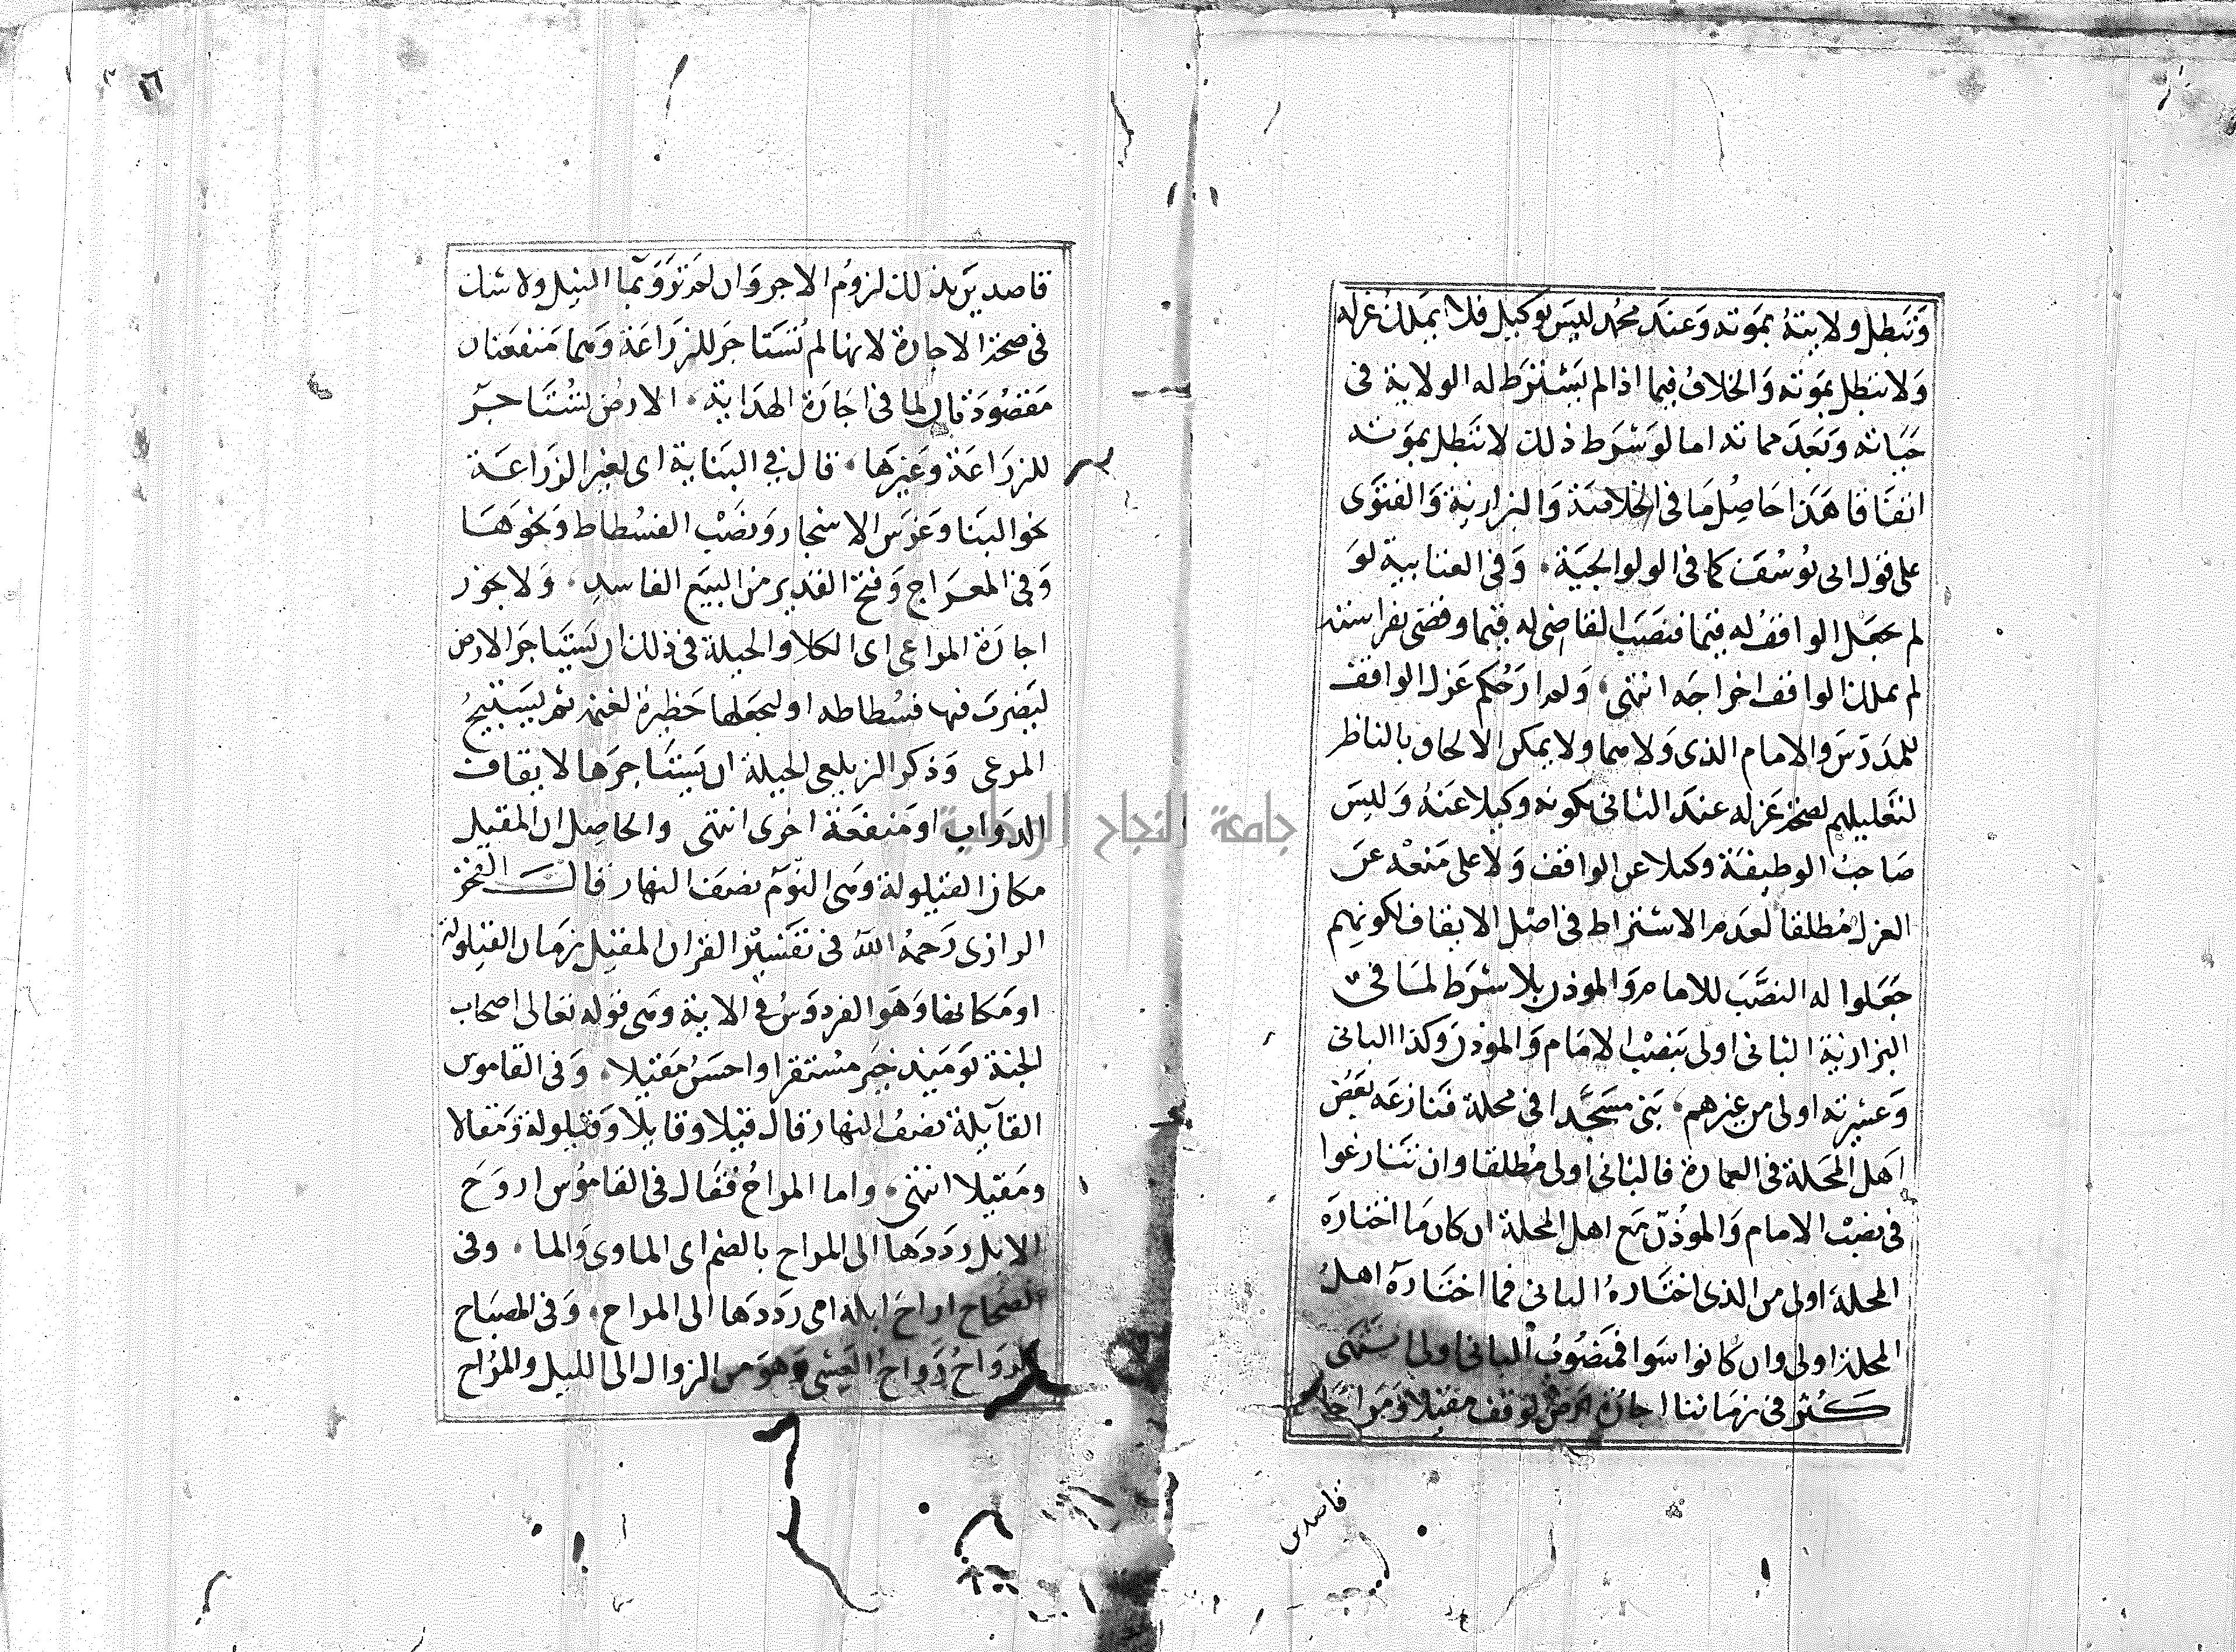 وتبطل ولايته بموته وعند محمد ليس بوكيل فلا يملك عزله
ولا تبطل بموته والخلاف فيما اذا لم يشترط له الولاية في
حياته وبعد مماته اما لو شرط ذلك لا تبطل بموته
اتفاقا هذا حاصل ما في الخلاصة والبزازية والفتوى
على قول ابى يوسف كما في الولوالجية، وفي العتابية لو
لم يجعل الواقف له قيما فنصب القاضي له قيما وقضى بقوامته
لم يملك الواقف اخراجه انتهى، ولم ار حكم عزل الواقف
للمدرس والامام الذى ولاهما ولا يمكن الالحاق بالناظر
لتعليلهم لصحة عزله عند الثاني بكونه وكيلا عنه وليس
صاحب الوظيفة وكيلا عن الواقف ولا على منعه عن
العزل مطلقا لعدم الاشتراط في اصل الايقاف لكونهم
جعلوا له النصب للامام والموذن بلا شرط لما في
البزازية البانى اولى بنصب الامام والموذن وكذا البانى
وعشيرته اولى من غيرهم، بنى مسجدا في محلة فنازعه بعض
اهل المحلة في العمارة فالبانى اولى مطلقا وان تنازعوا
في نصب الامام والموذن مع اهل المحلة ان كان ما اختاره
المحلة اولى من الذى اختاره البانى فما اختاره اهل
المحلة اولى وان كانوا سوا فمنصوب البانى اولى انتهى
كثر في زماننا اجارة ارض لوقف مقيلا ومراحا
قاصدين
٢٦
قاصدين بذلك لزوم الاجر وان لم ترو بما النيل ولا شك
في صحة الاجارة لانها لم تستاجر للزراعة وهما منفعتان
مقصودتان لما في اجارة الهداية، الارض تستاجر
للزراعة وغيرها، قال في البناية اى لغير الزراعة
نحو البنا وغرس الاشجار ونصب الفسطاط ونحوها
وفي المعراج وفتح القدير من البيع الفاسد، ولا يجوز
اجارة المراعى اى الكلا والحيلة في ذلك ان يستاجر الارض
ليضرب فيها فسطاطه او ليجعلها حظيرة لغنمه ثم يستبيح
المرعى وذكر الزيلعي الحيلة ان يستاجرها لايقاف
الدواب او منفعة اخرى انتهى والحاصل ان المقيل
مكان القيلولة وهى النوم نصف النهار قال الفخر
الرازى رحمه الله في تفسير القران المقيل زمان القيلولة
او مكانها وهو الفردوس في الاية وهى قوله تعالى اصحاب
الجنة يوميذ خير مستقرا واحسن مقيلا، وفي القاموس
القآيلة نصف النهار قال قيلا وقايلا وقيلولة ومقالا
ومقيلا انتهى، واما المراح فقال في القاموس اروح
الابل رددها الى المراح بالضم اى الماوى والما، وفي
الصحاح اراح ابله اى رددها الى المراح، وفي المصباح
الرواح رواح العشى وهو من الزوال الى الليل والمراح
جامعة النجاح الوطنية